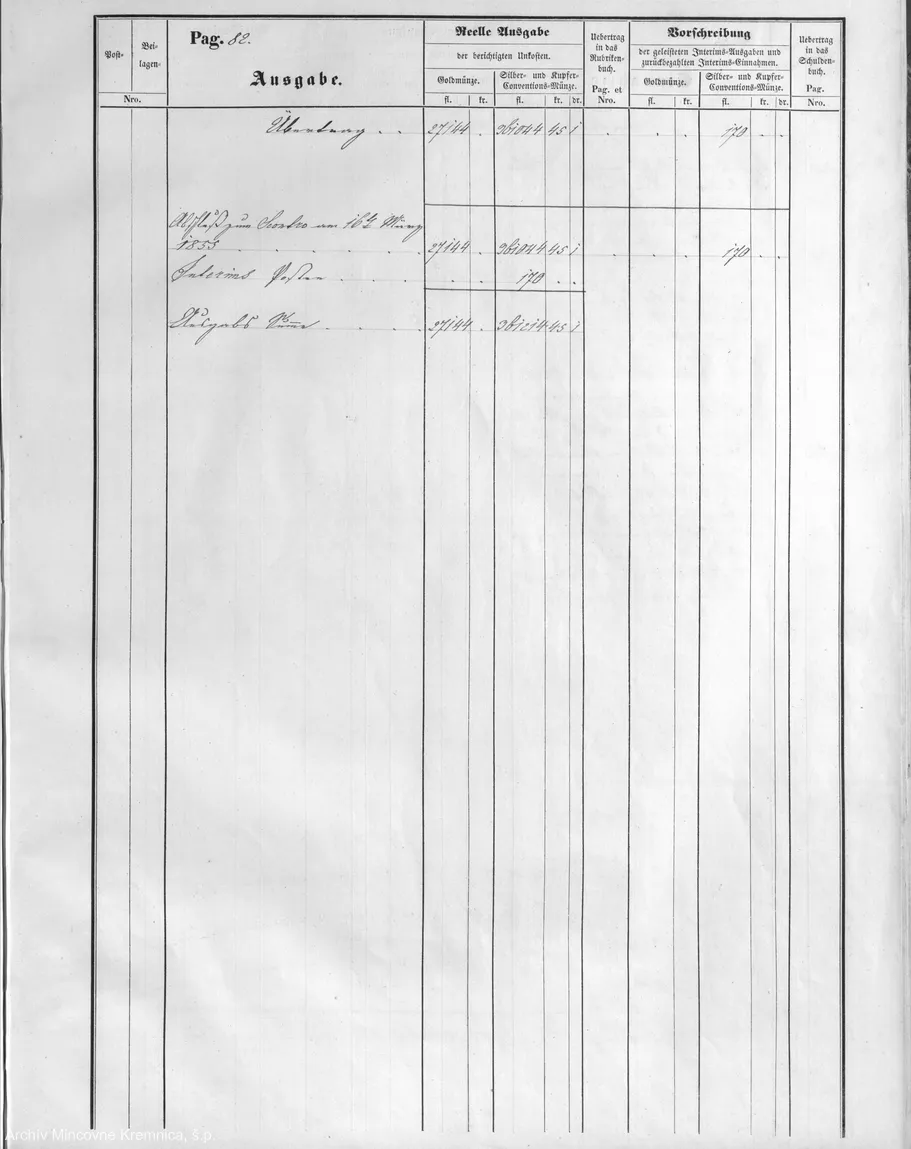 Pag. 82.
Ausgabe.
Post-
Bei-
lagen-
Nro.
Reelle Ausgabe
der berichtigten Unkosten.
Goldmünze.
Silber- und Kupfer-
Conventions-Münze.
fl. kr. fl. kr. dr.
Uebertrag
in das
Rubriken-
buch.
Pag. et
Nro.
Vorschreibung
der geleisteten Interims-Ausgaben und
zurückbezahlten Interims-Einnahmen.
Goldmünze.
Silber- und Kupfer-
Conventions-Münze.
fl. kr. fl. kr. dr.
Uebertrag
in das
Schulden-
buch.
Pag.
Nro.
Übertrag . . 27144 . 361044 45 1 . . . 170 . .
Abschluß zum Scontro am 16ten März
1855 . . . . . 27144 . 361044 45 1 . . . 170 . .
Interims Posten . . . . . . 170 . .
Ausgabs Summe . . . . 27144 . 361214 45 1
Archív Mincovne Kremnica, š.p.